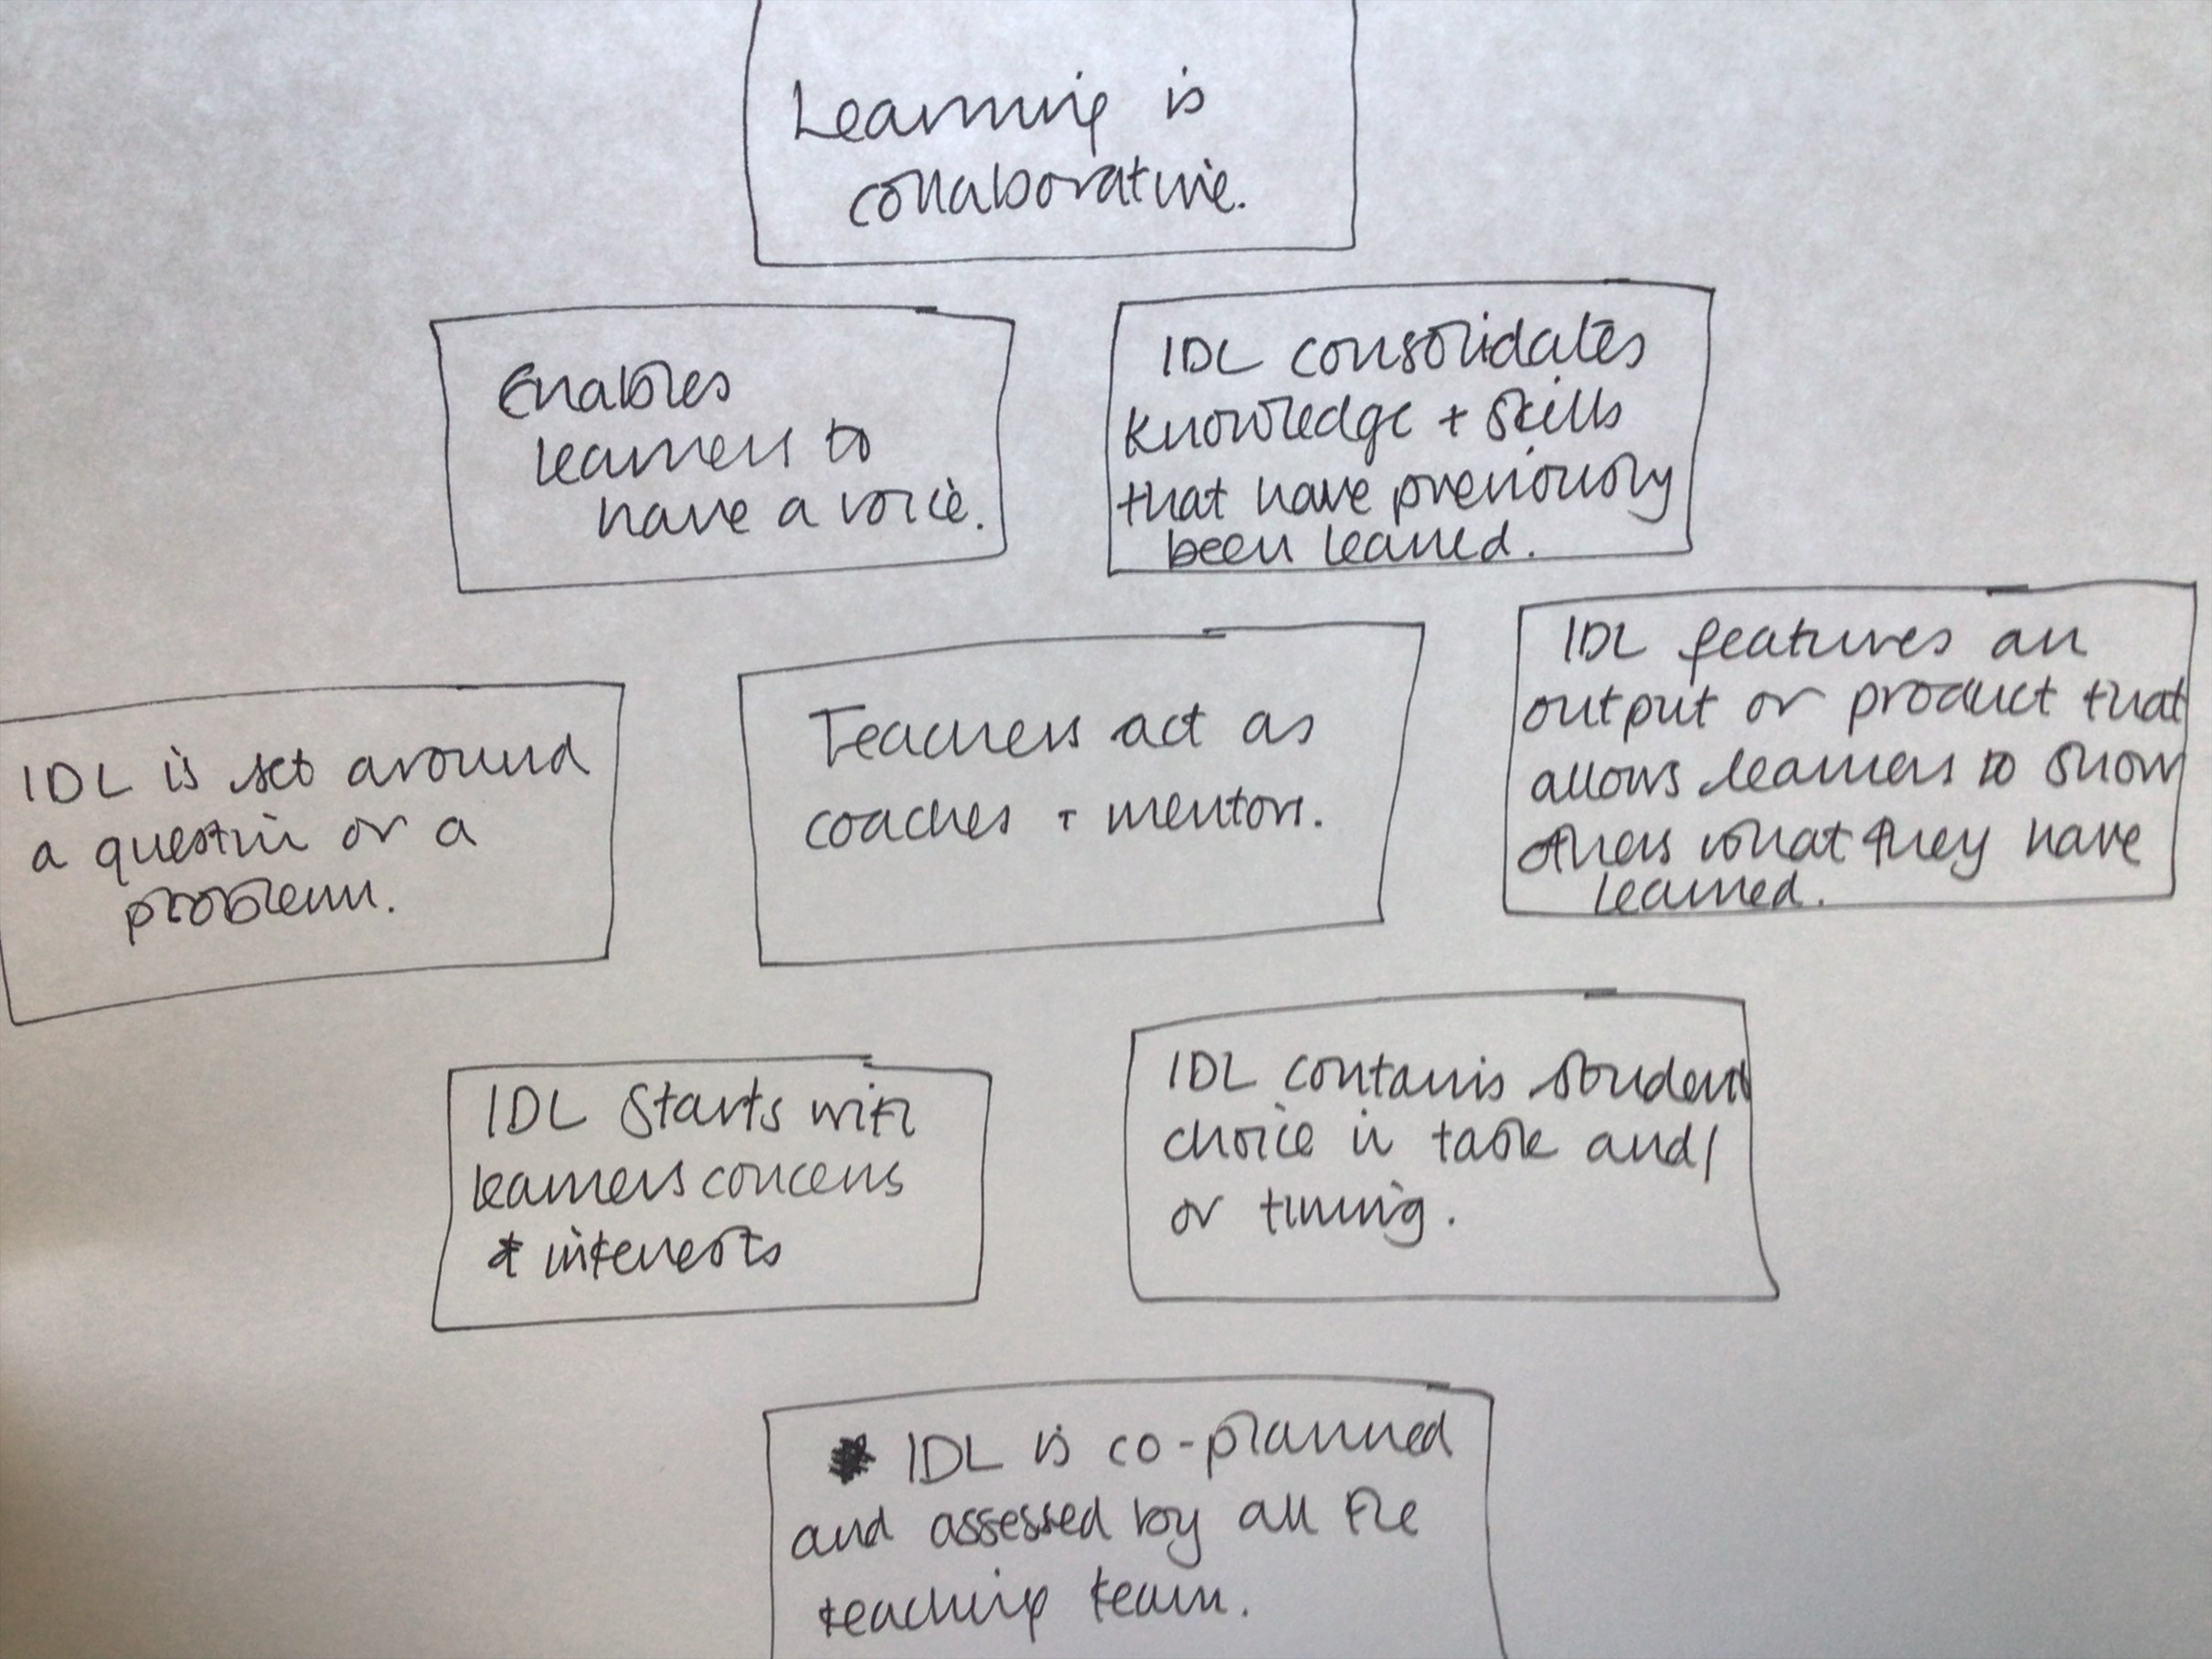 Learning is
collaborative.
Enables
learners to
have a voice.
IDL consolidates
knowledge + skills
that have previously
been learned.
IDL is set around
a question or a
problem.
Teachers act as
coaches + mentors.
IDL features an
output or product that
allows learners to show
others what they have
learned.
IDL starts with
learners concerns
+ interests
IDL contains student
choice in task and/
or timing.
IDL is co-planned
and assessed by all the
teaching team.